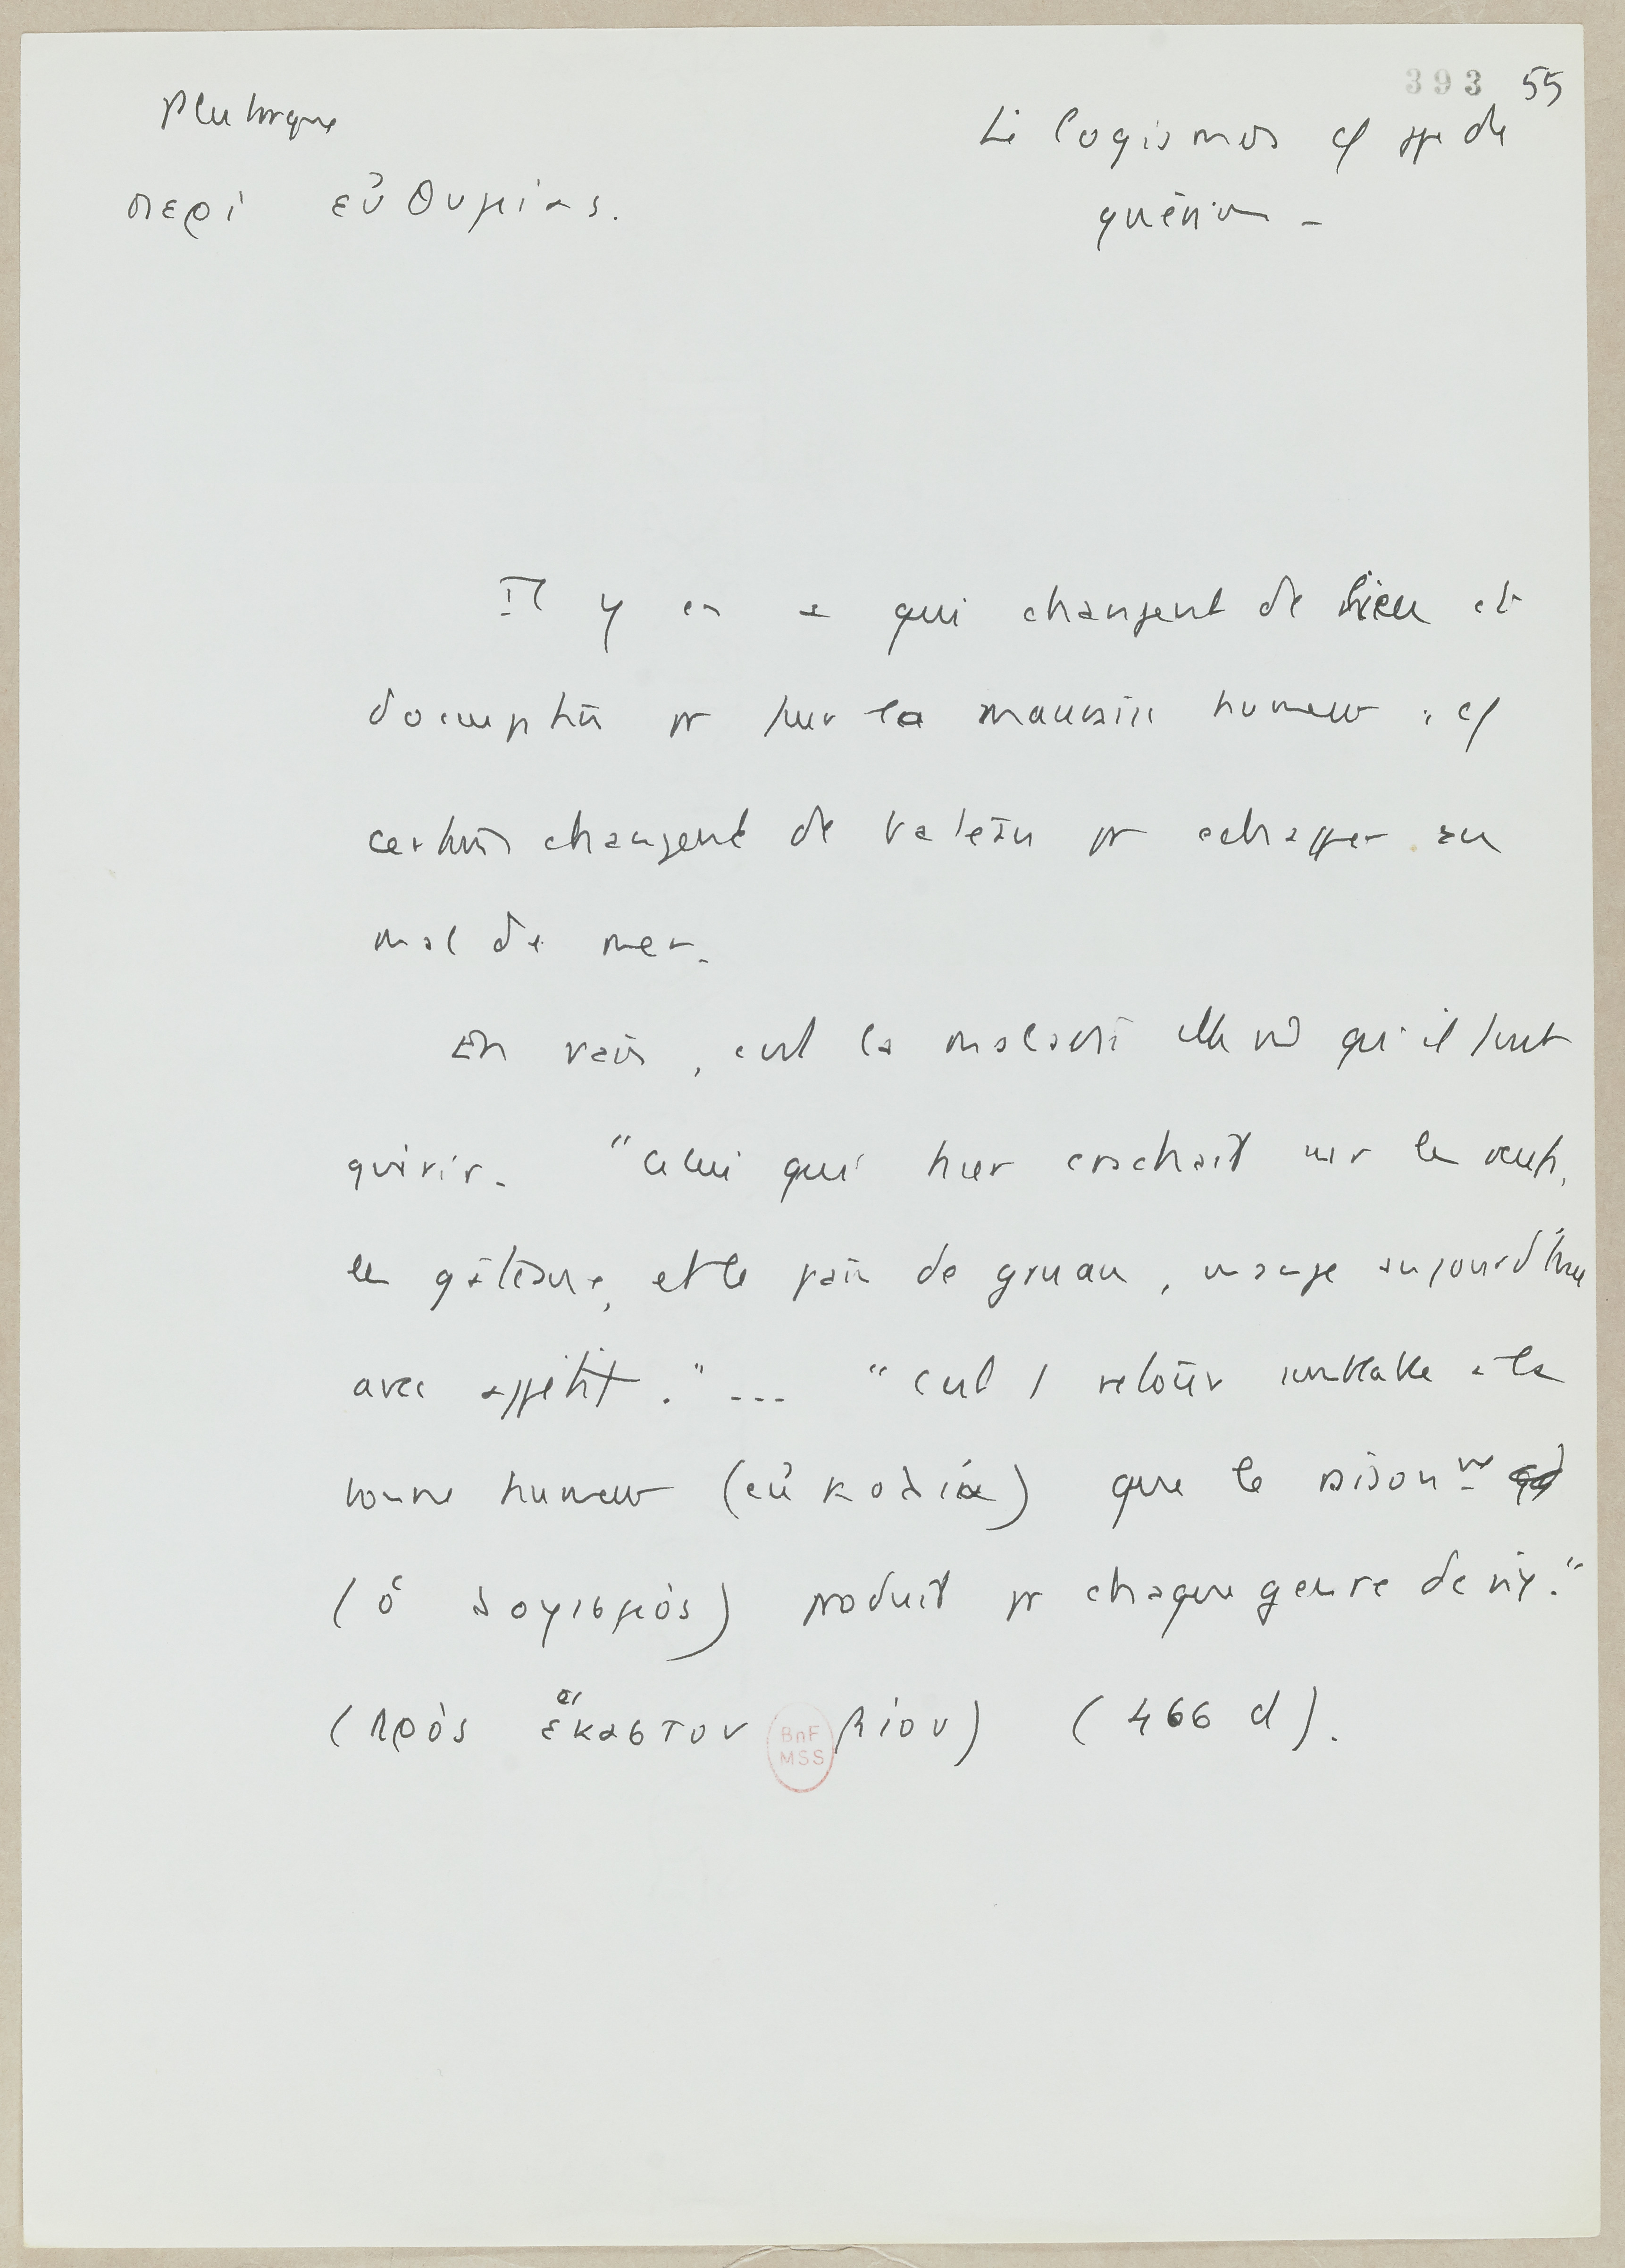 393 55
Plutarque
περὶ εὐθυμίας.
Le logismos cf de
guérison -
Il y en a qui changent de lieu et
d'occupation pr fuir la mauvaise humeur : cf
certains changent de bateau pr echapper au
mal de mer.
En vain, c'est la maladie elle m̂ qu'il faut
guérir. "Celui qui hier crachait sur les œufs,
les gâteaux, et le pain de gruau, mange aujourd'hui
avec appétit." --- "C'est 1 retour semblable a la
bonne humeur (εὐκολία) que le raisonnt
(ὁ λογισμὸς) produit pr chaque genre de vie."
(πρὸς ἕκαστον βίον) (466 d).
BnF
MSS